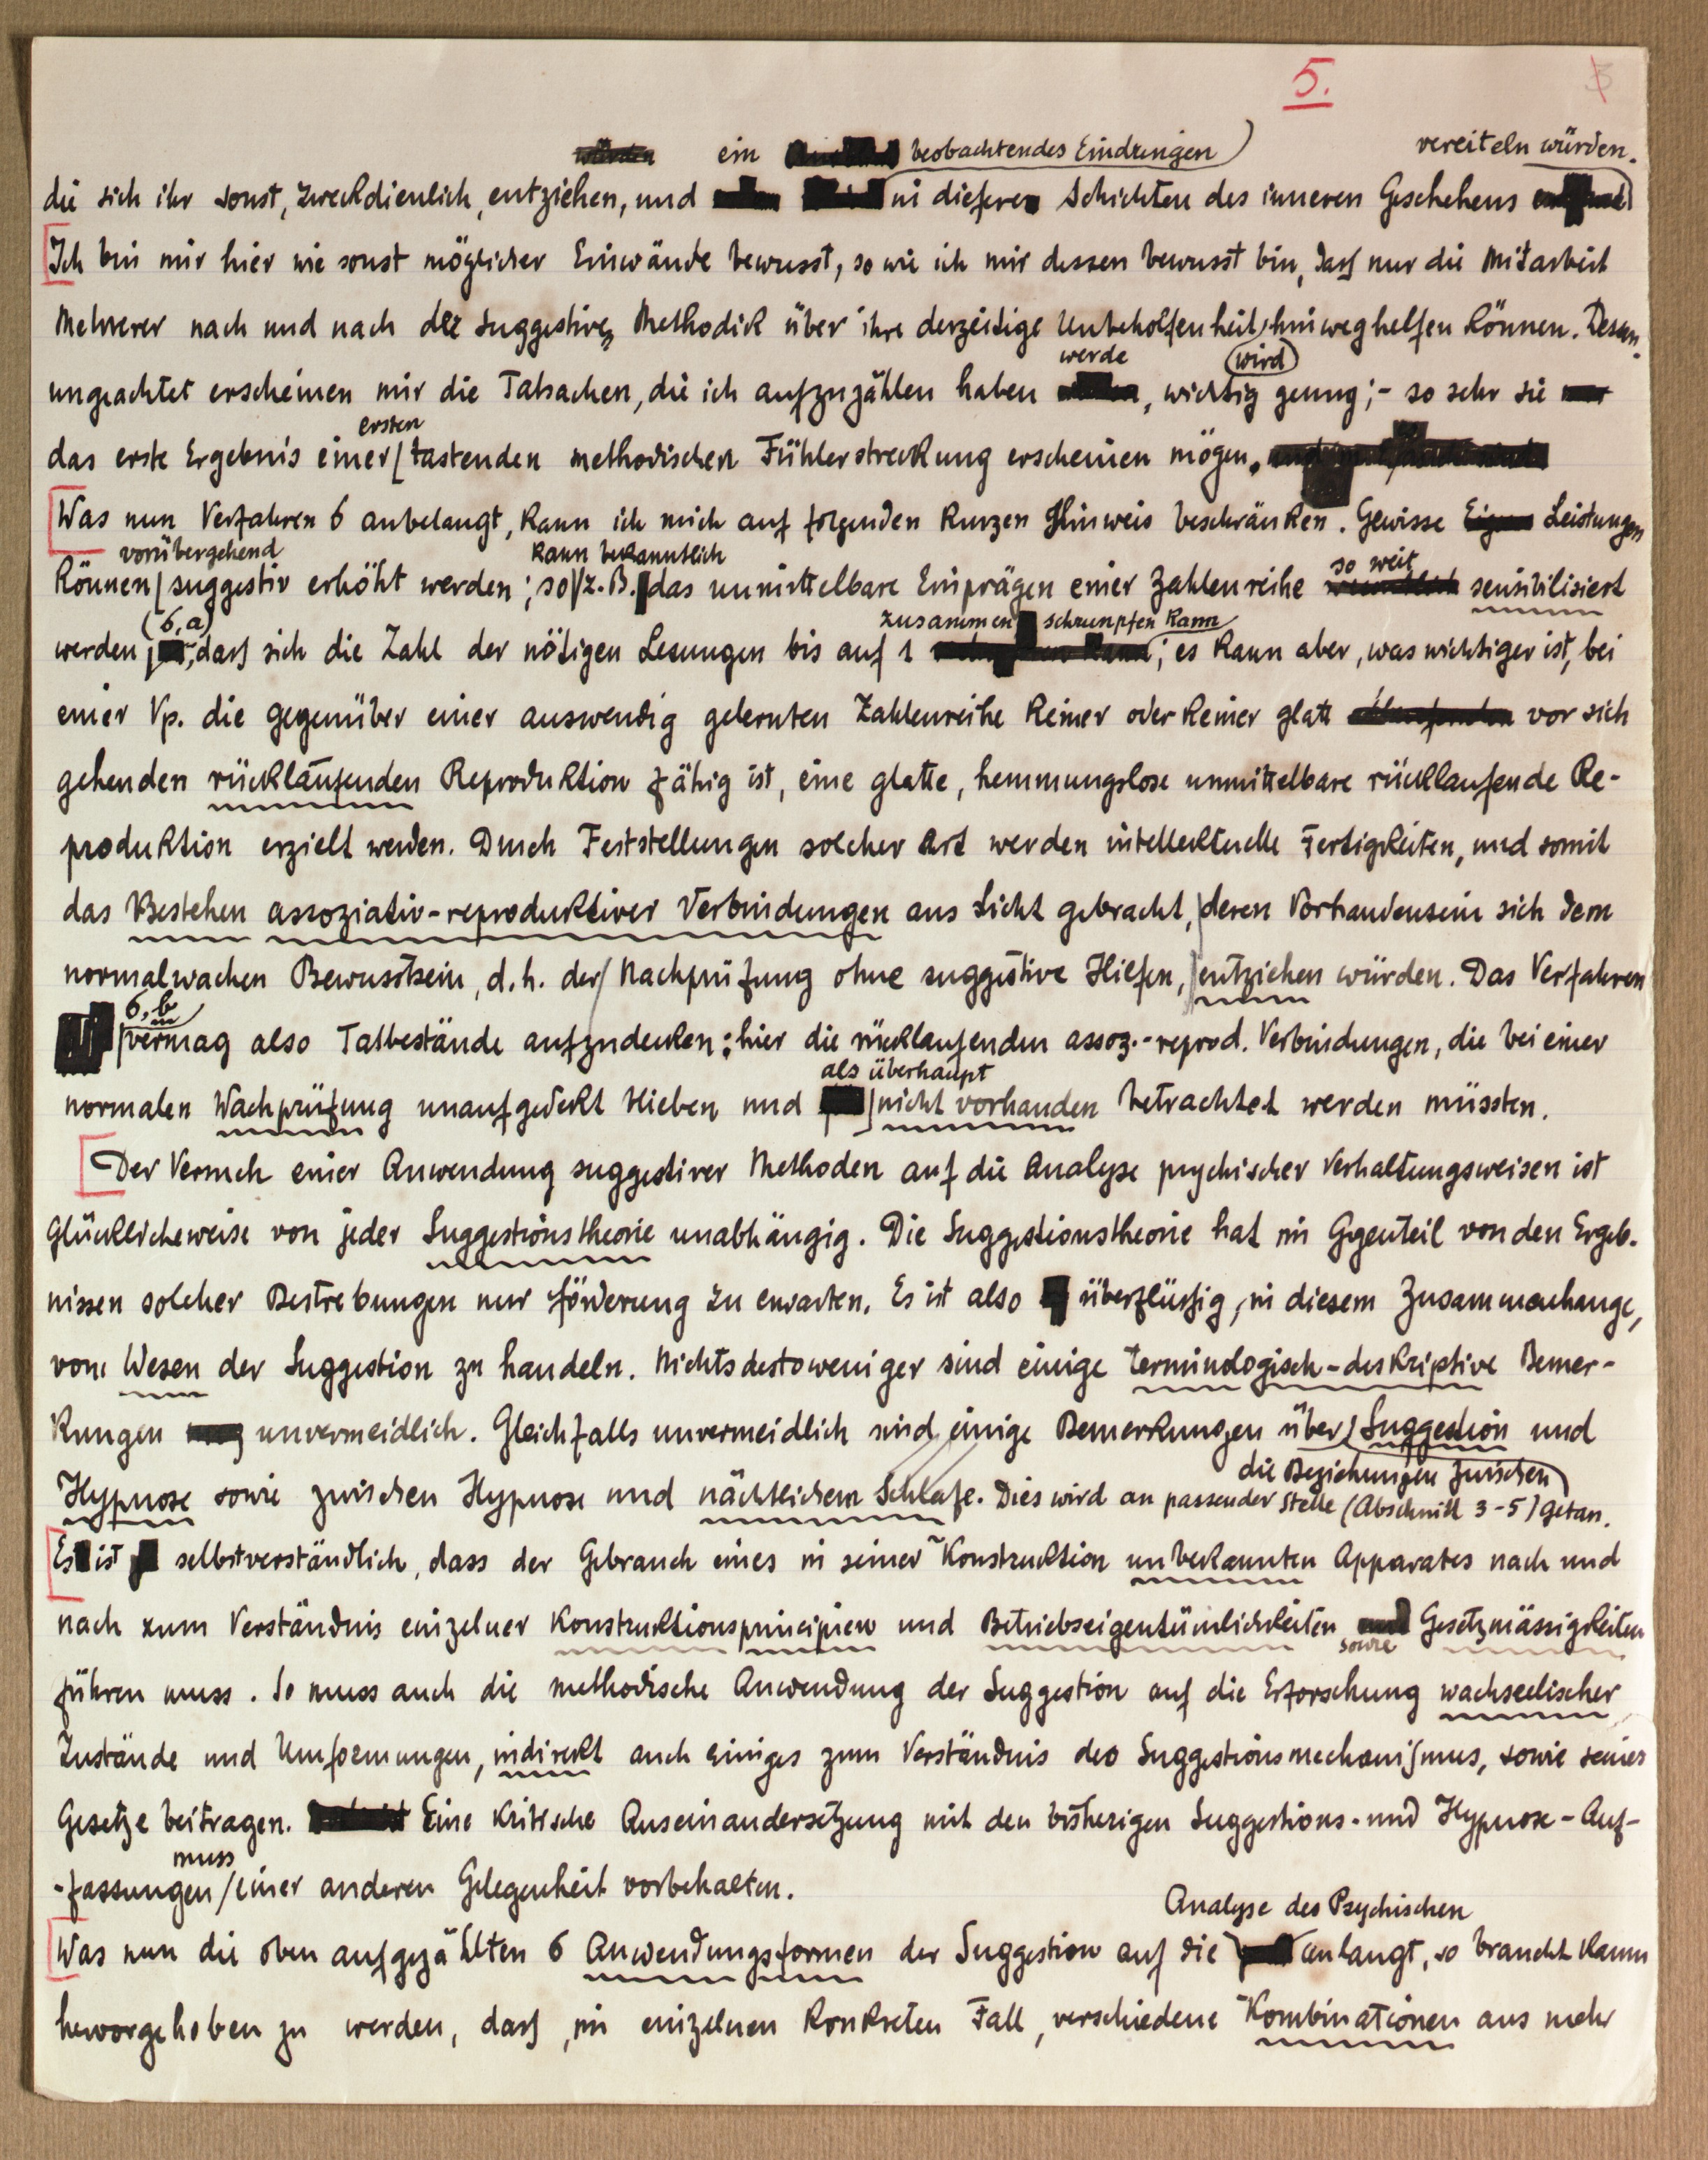 5.
ein beobachtendes Eindringen vereiteln würden.
die sich ihr sonst, zweckdienlich, entziehen, und in tiefere Schichten des inneren Geschehens
Ich bin mir hier wie sonst möglicher Einwände bewusst, so wie ich mir dessen bewusst bin, dass nur die Mitarbeit
Mehrerer nach und nach der suggestiven Methodik über ihre derzeitige Unbeholfenheit hinweghelfen können. Dessen-
werde wird
ungeachtet erscheinen mir die Tatsachen, die ich aufzuzählen haben, wichtig genug; - so sehr sie
ersten
das erste Ergebnis einer tastenden methodischen Fühlerstreckung erscheinen mögen.
Was nun Verfahren 6 anbelangt, kann ich mich auf folgenden kurzen Hinweis beschränken. Gewisse Leistungen
vorübergehend kann bekanntlich so weit
können suggestiv erhöht werden; so z.B. das unmittelbare Einprägen einer Zahlenreihe sensibilisiert
(6,a) zusammenschrumpfen kann
werden, dass sich die Zahl der nötigen Lesungen bis auf 1; es kann aber, was wichtiger ist, bei
einer Vp. die gegenüber einer auswendig gelernten Zahlenreihe keiner oder keiner glatt vor sich
gehenden rückläufenden Reproduktion fähig ist, eine glatte, hemmungslose unmittelbare rücklaufende Re-
produktion erzielt werden. Durch Feststellungen solcher Art werden intellektuelle Fertigkeiten, und somit
das Bestehen assoziativ-reproduktiver Verbindungen ans Licht gebracht, deren Vorhandensein sich dem
normalwachen Bewusstsein, d.h. der Nachprüfung ohne suggestive Hilfen, entziehen würden. Das Verfahren
6,b
vermag also Tatbestände aufzudecken: hier die rücklaufenden assoz.-reprod. Verbindungen, die bei einer
als überhaupt
normalen Wachprüfung unaufgedeckt blieben und nicht vorhanden betrachtet werden müssten.
Der Versuch einer Anwendung suggestiver Methoden auf die Analyse psychischer Verhaltungsweisen ist
glücklicheweise von jeder Suggestionstheorie unabhängig. Die Suggestionstheorie hat im Gegenteil von den Ergeb-
nissen solcher Bestrebungen nur Förderung zu erwarten. Es ist also überflüssig, in diesem Zusammenhange,
vom Wesen der Suggestion zu handeln. Nichtsdestoweniger sind einige terminologisch-deskriptive Bemer-
kungen unvermeidlich. Gleichfalls unvermeidlich sind einige Bemerkungen über Suggestion und
die Beziehungen zwischen
Hypnose sowie zwischen Hypnose und nächtlichem Schlafe. Dies wird an passender Stelle (Abschnitt 3-5) getan.
Es ist selbstverständlich, dass der Gebrauch eines in seiner Konstruktion unbekannten Apparates nach und
nach zum Verständnis einzelner Konstruktionsprincipien und Betriebseigentümlichkeiten sowie Gesetzmässigkeiten
führen muss. So muss auch die methodische Anwendung der Suggestion auf die Erforschung wachseelischer
Zustände und Umformungen, indirekt auch einiges zum Verständnis des Suggestionsmechanismus, sowie seiner
Gesetze beitragen. Eine kritische Auseinandersetzung mit den bisherigen Suggestions- und Hypnose-Auf-
muss
-fassungen einer anderen Gelegenheit vorbehalten.
Analyse des Psychischen
Was nun die oben aufgezählten 6 Anwendungsformen der Suggestion auf die anlangt, so braucht kaum
hervorgehoben zu werden, dass, im einzelnen konkreten Fall, verschiedene Kombinationen aus mehr